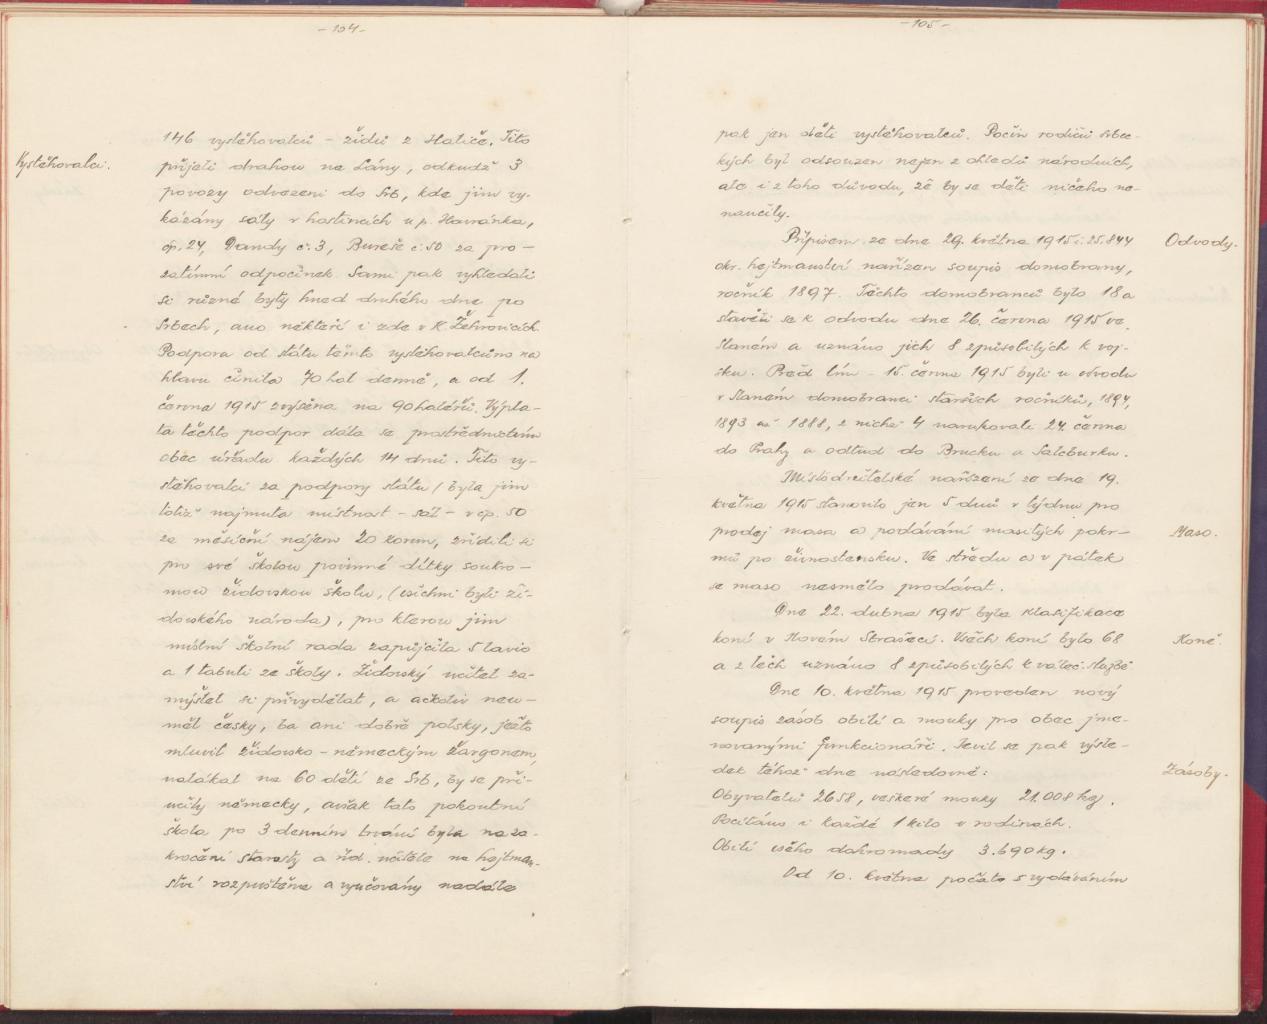 - 104 -
Vystěhovalci.
146 vystěhovalců - židů z Haliče. Tito
přijeli drahou na Lány, odkudž 3
povozy odvezeni do Srb, kde jim vy-
kázány sály v hostincích u p. Havránka,
čp. 24, Dandy č. 3, Bureše č. 50 za pro-
zatímní odpočinek. Sami pak vyhledali
si různé byty hned druhého dne po
Srbech, ano někteří i zde v K. Žehrovicích.
Podpora od státu těmto vystěhovalcům na
hlavu činila 70 hal denně, a od 1.
června 1915 zvýšena na 90 haléřů. Výpla-
ta těchto podpor dála se prostřednictvím
obec. úřadu každých 14 dnů. Tito vy-
stěhovalci za podpory státu (byla jim
totiž najmuta místnost - sál - v čp. 50
za měsíční nájem 20 korun, zřídili si
pro své školou povinné dítky soukro-
mou židovskou školu, (všichni byli ži-
dovského národa), pro kterou jim
místní školní rada zapůjčila 5 lavic
a 1 tabuli ze školy. Židovský učitel za-
mýšlel si přivydělat, a ačkoliv neu-
měl česky, ba ani dobře polsky, ježto
mluvil židovsko - německým žargonem,
nalákal na 60 dětí ze Srb, by se při-
učily německy, avšak tato pokoutní
škola po 3 denním trvání byla na za-
kročení starosty a říd. učitele na hejtman-
ství rozpuštěna a vyučovány nadále
- 105 -
pak jen děti vystěhovalců. Počin rodičů srbec-
kých byl odsouzen nejen z ohledů národních,
ale i z toho důvodu, že by se děti ničeho ne-
naučily.
Odvody.
Přípisem ze dne 29. května 1915 č. 25.844
okr. hejtmanství nařízen soupis domobrany,
ročník 1897. Těchto domobranců bylo 18 a
stavěli se k odvodu dne 26. června 1915 ve
Slaném a uznáno jich 8 způsobilých k voj-
sku. Před tím - 15. června 1915 byli u odvodu
v Slaném domobranci starších ročníků, 1894,
1893 až 1888, z nichž 4 narukovali 24. června
do Prahy a odtud do Brucku a Salcburku.
Místodržitelské nařízení ze dne 19.
května 1915 stanovilo jen 5 dnů v týdnu pro
Maso.
prodej masa a podávání masitých pokr-
mů po živnostensku. Ve středu a v pátek
se maso nesmělo prodávat.
Dne 22. dubna 1915 byla klasifikace
Koně.
koní v Novém Strašecí. Všech koní bylo 68
a z těch uznáno 8 způsobilých k váleč. službě
Dne 10. května 1915 proveden nový
soupis zásob obilí a mouky pro obec jme-
novanými funkcionáři. Jevil se pak výsle-
Zásoby.
dek téhož dne následovně:
Obyvatelů 2658, veškeré mouky 21.008 kg.
Počítáno i každé 1 kilo v rodinách.
Obilí všeho dohromady 3.690 kg.
Od 10. května počato s vydáváním